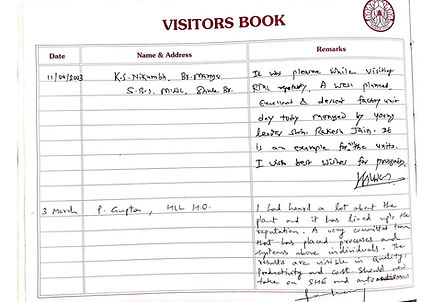 VISITORS BOOK
Date
Name & Address
Remarks
11/09/2003
K.S. Nikumbh, Br. Manager
It was pleasure while visiting
A well planned,
Excellent & decent factory unit
day today managed by young
leader Shri. Rakesh Jain. It
is an example for the units.
I wish best wishes for prosperity
3 March
P. Gupta, HLL H.O.
I had heard a lot about the
plant and it has lived upto the
reputation. A very committed team
that has placed processes and
systems above individuals. The
results are visible in Quality,
Productivity and cost. Should now
take on SHE and